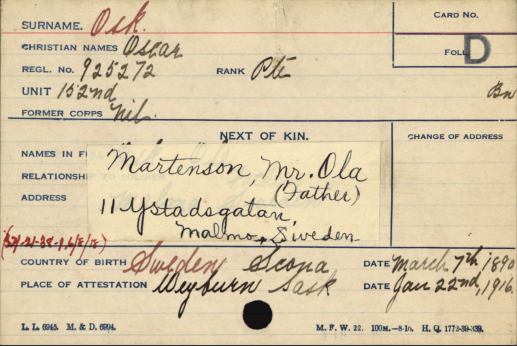 SURNAME. Osk.
CARD NO.
CHRISTIAN NAMES Oscar
FOLL D
REGL. No. 925272 RANK Pte
UNIT 152nd Bn
FORMER CORPS Nil.
NEXT OF KIN.
CHANGE OF ADDRESS
NAMES IN F
RELATIONSHIP
ADDRESS
Martenson, Mr. Ola
(Father)
11 Ystadsgatan,
Malmo, Sweden
COUNTRY OF BIRTH Sweden Scona DATE March 7th 1890
PLACE OF ATTESTATION Weyburn Sask DATE Jan 22nd, 1916.
L. L. 6945. M. & D. 6994.
M. F. W. 22. 100M.—8-16. H. Q. 1772-39-339.